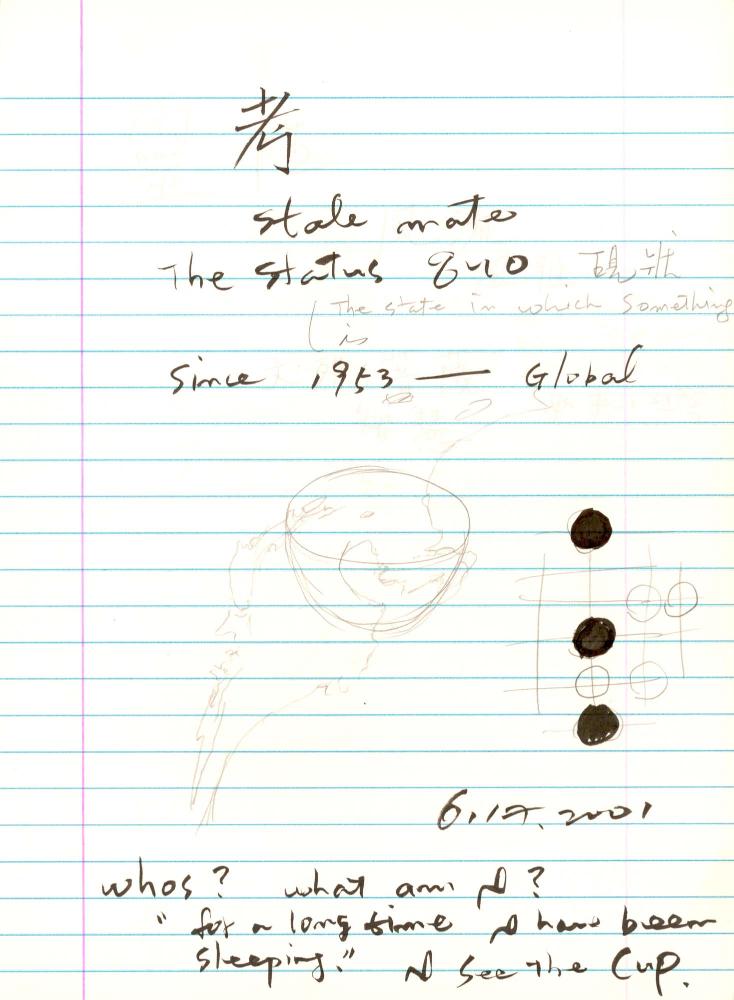 考
stale mate
The status quo 現狀
The state in which something
is
Since 1953 — Global
6.17.2001
whos? what am I?
"for a long time I have been
sleeping." I see the Cup.